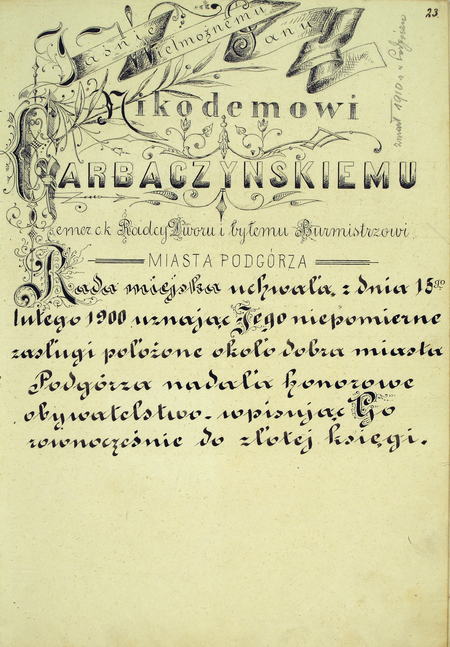 23
Jaśnie Wielmożnemu Panu
Nikodemowi
GARBACZYŃSKIEMU
emer c.k. Radcy Dworu i byłemu Burmistrzowi
MIASTA PODGÓRZA
Rada miejska uchwałą z dnia 15go
lutego 1900 uznając Jego niepomierne
zasługi położone około dobra miasta
Podgórza nadała honorowe
obywatelstwo - wpisując Go
rownocześnie do złotej księgi.
zmarł 1910 r. w